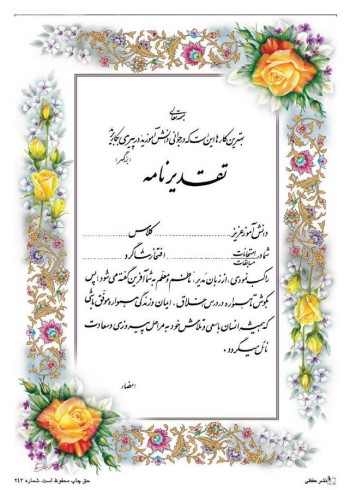 بسمه تعالی
بهترین کارها این است که در جوانی دانش آموزید و در پیری بکار برید
(بزرگمهر)
تقدیرنامه
دانش آموز عزیز .................... کلاس ....................
شما در امتحانات .................... افتخار شاگرد ....................
مسابقات
را کسب نمودی، از زبان مدیر، ناظم و معلم به شما آفرین گفته می شود؛ پس
بکوش تا همواره در درس، اخلاق، ایمان و زندگی همواره موفق باشی
که همیشه انسان با سعی و تلاش خود به مراحل پیروزی و سعادت
نائل میگردد.
امضاء
نشر حفظی
حق چاپ محفوظ است. شماره ۲۴۲